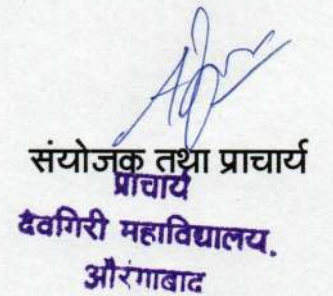 संयोजक तथा प्राचार्य
प्राचार्य
देवगिरी महाविद्यालय.
औरंगाबाद